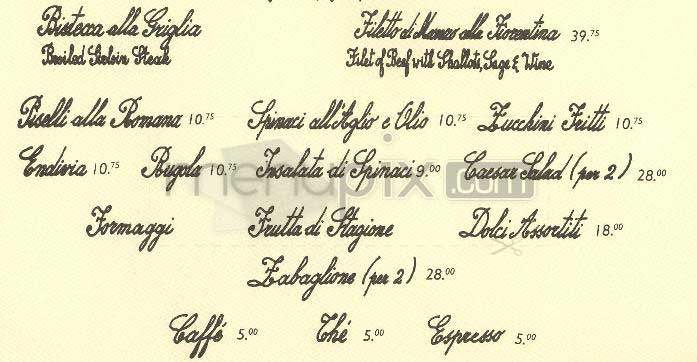 Bistecca alla Griglia Filetto di Manzo alla Fiorentina 39.75
Broiled Sirloin Steak Filet of Beef with Shallots, Sage & Wine
Piselli alla Romana 10.75 Spinaci all'Aglio e Olio 10.75 Zucchini Fritti 10.75
Endivia 10.75 Rugola 10.75 Insalata di Spinaci 9.00 Caesar Salad (per 2) 28.00
menupix.com
Formaggi Frutta di Stagione Dolci Assortiti 18.00
Zabaglione (per 2) 28.00
Caffé 5.00 Thé 5.00 Espresso 5.00